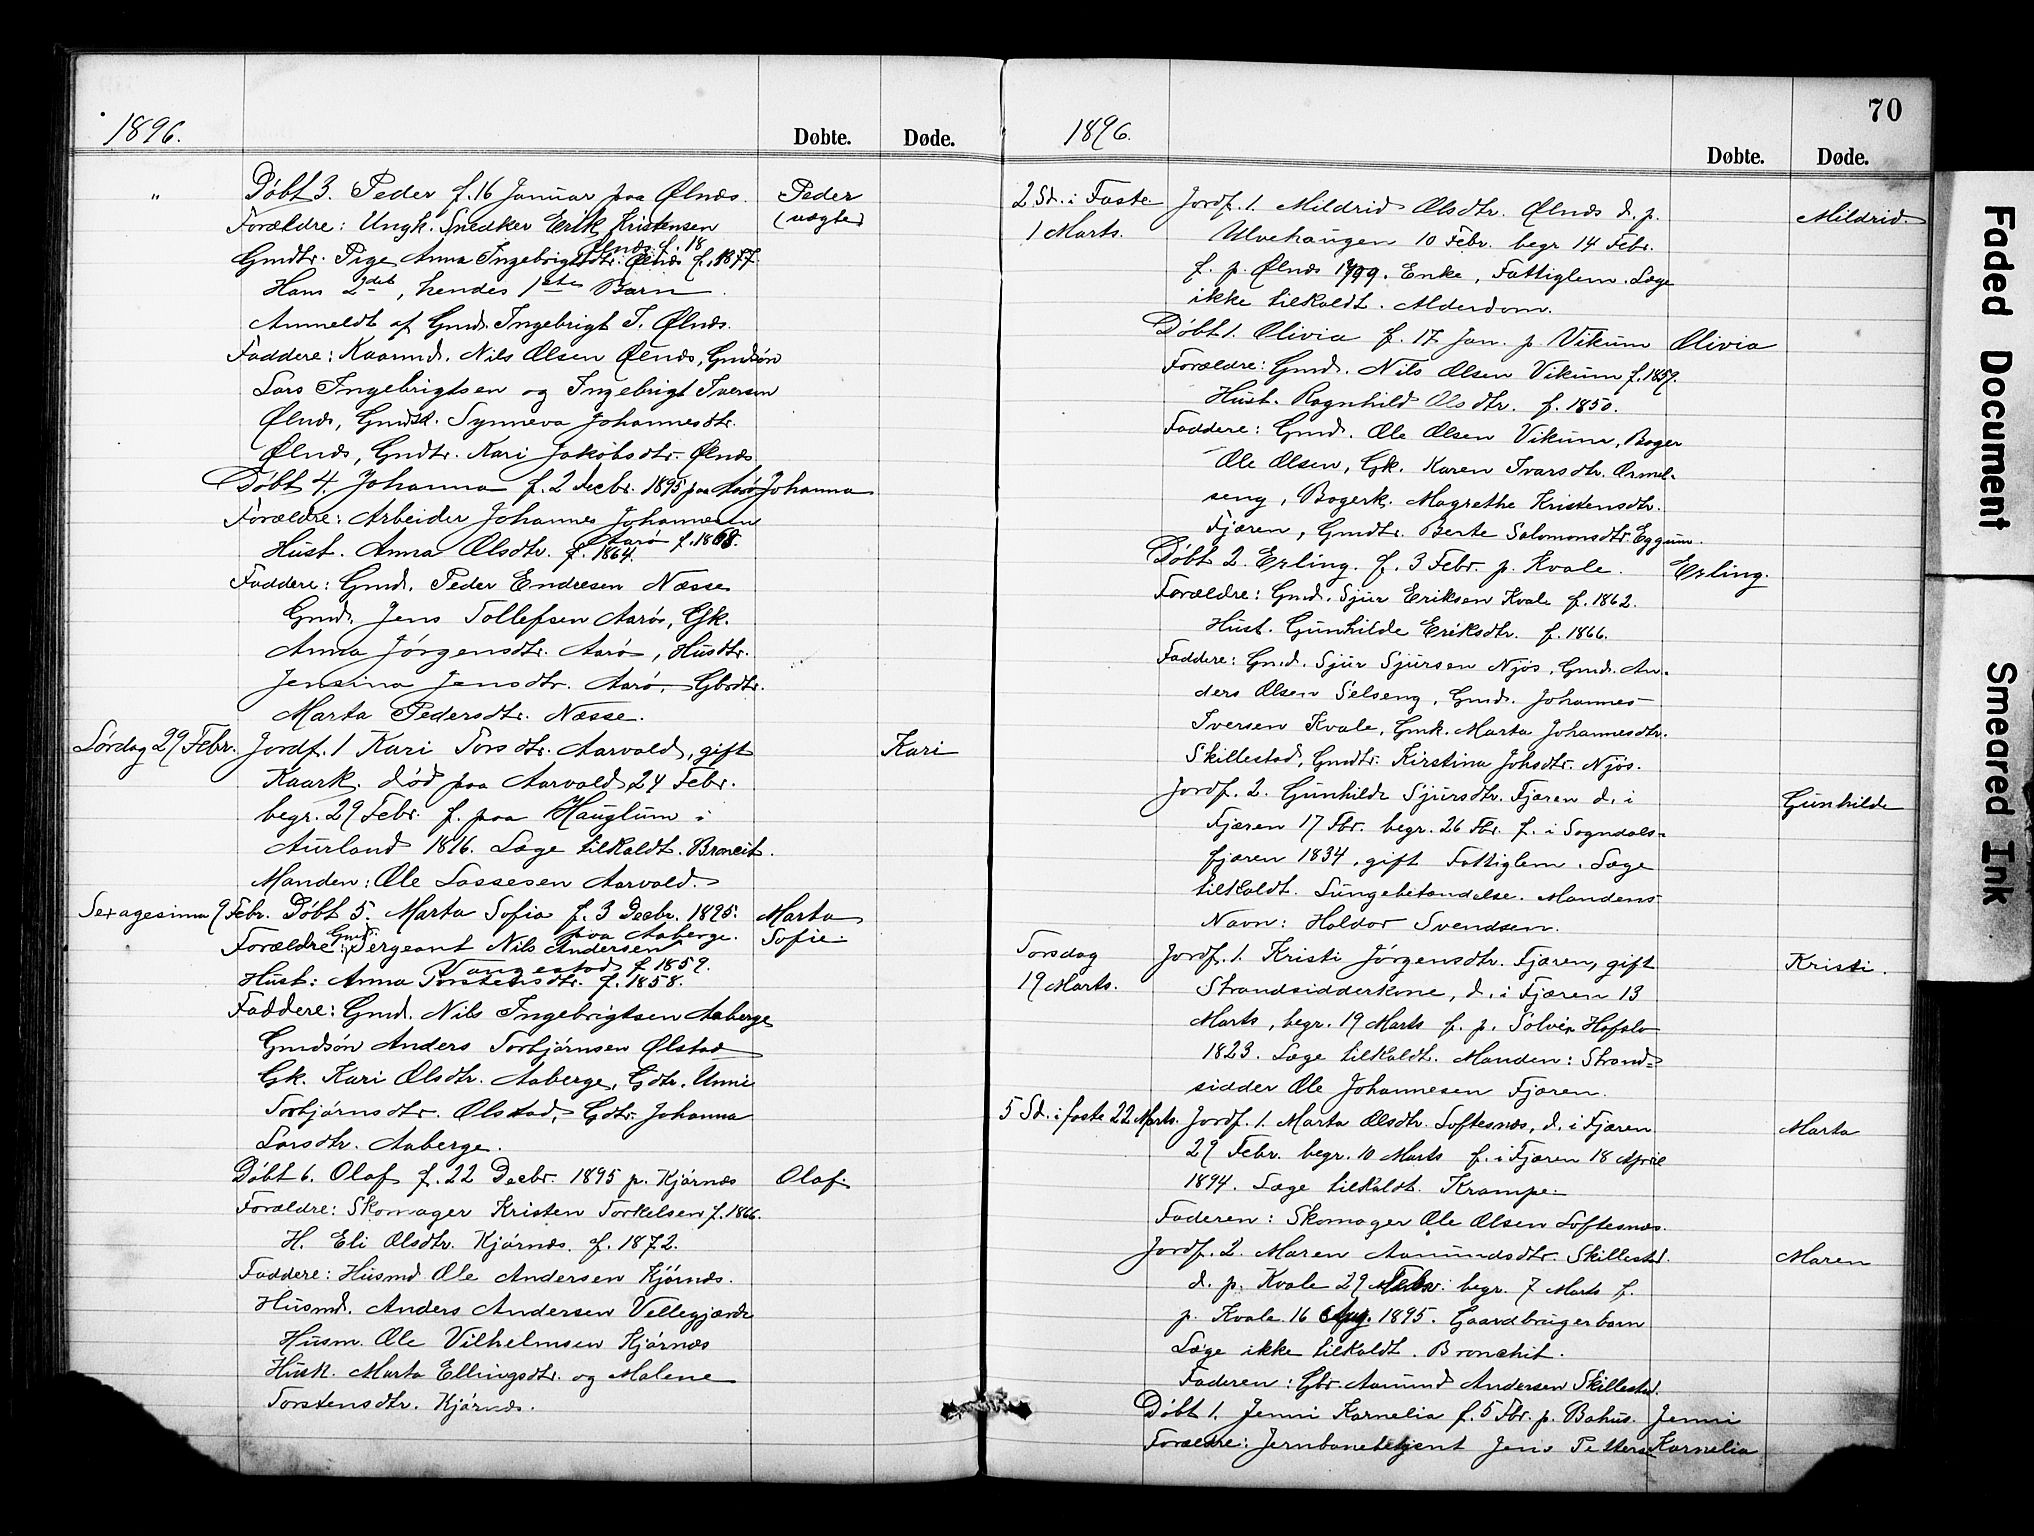 1896.
Døbte.
Døde.
"
Døbt 3. Peder f. 16 Januar paa Ølnæs.
Peder
(uægte)
Forældre: Ungk. Snedker Erik Kristensen
Ølnæs f. 18
Gmdtr. Pige Anna Ingebrigtsdtr. Ølnæs f. 1877.
Hans 2det, hendes 1ste Barn.
Anmeldt af Gmd. Ingebrigt I. Ølnæs.
Faddere: Kaarmd. Nils Olsen Ølnæs, Gmdsøn
Lars Ingebrigtsen og Ingebrigt Iversen
Ølnæs, Gmdsk. Synneva Johannesdtr.
Ølnæs, Gmdtr. Kari Jakobsdtr. Ølnæs.
Døbt 4. Johanna f. 2 Decbr. 1895 paa Aarø
Johanna
Forældre: Arbeider Johannes Johannesen
Aarø f. 1868.
Hust. Anna Olsdtr. f. 1864.
Faddere: Gmd. Peder Endresen Næsse
Gmd. Jens Tollefsen Aarø, Gk.
Anna Jørgensdtr. Aarø, Husdtr.
Jensina Jensdtr. Aarø, Gbrdtr.
Marta Pedersdtr. Næsse.
Lørdag 29 Febr.
Jordf. 1 Kari Torsdtr. Aarvold, gift
Kari
Kaark. død paa Aarvold 24 Febr.
begr. 29 Febr. f. paa Hauglum i
Aurland 1816. Læge tilkaldt. Broncit.
Manden: Ole Lassesen Aarvold.
Sexagesima 9 Febr.
Døbt 5. Marta Sofia f. 3 Decbr. 1895.
paa Aaberge.
Marta
Sofie.
Forældre: Gmd. Sergeant Nils Andersen
Vangestad f. 1859.
Hust: Anna Torstensdtr. f. 1858.
Faddere: Gmd. Nils Ingebrigtsen Aaberge
Gmdsøn Anders Torbjørnsen Ølstad
Gk. Kari Olsdtr. Aaberge, Gdtr. Unni
Torbjørnsdtr. Ølstad, Gdtr. Johanna
Larsdtr. Aaberge.
Døbt 6. Olaf f. 22 Decbr. 1895 p. Kjørnæs
Olaf.
Forældre: Skomager Kristen Torkelsen f. 1866.
H. Eli Olsdtr. Kjørnæs. f. 1872.
Faddere: Husmd Ole Andersen Kjørnæs.
Husmd. Anders Andersen Vellegjærde
Husm. Ole Vilhelmsen Kjørnæs
Husk. Marta Ellingsdtr. og Malene
Torstensdtr. Kjørnæs.
70
1896.
Døbte.
Døde.
2 Sd. i Faste
1 Marts.
Jordf. 1. Mildrid Olsdtr. Ølnæs d. p.
Mildrid.
Ulvehaugen 10 Febr. begr 14 Febr.
f. p. Ølnæs Enke, Fattiglem. Læge
ikke tilkaldt. Alderdom.
Døbt 1. Olivia f. 17 Jan. p. Vikum
Olivia
Forældre: Gmd. Nils Olsen Vikum f. 1859.
Hust. Ragnhild Olsdtr. f. 1850.
Faddere: Gmd. Ole Olsen Vikum, Bager
Ole Olsen, Gk. Karen Ivarsdtr. Ormel-
seng, Bagerk. Magrethe Kristensdtr.
Fjæren, Gmdtr. Berte Salomonsdtr. Eggum.
Døbt 2 Erling. f. 3 Febr. p. Kvale.
Erling.
Forældre: Gmd. Sjur Eriksen Kvale f. 1862.
Hust. Gunhilde Eriksdtr. f. 1866.
Faddere: Gmd. Sjur Sjursen Njøs, Gmd. An-
ders Olsen Selseng, Gmd. Johannes
Iversen Kvale, Gmk. Marta Johannesdtr.
Skillestad, Gmdtr. Kirstina Johsdtr. Njøs.
Jordf. 2. Gunhilde Sjursdtr. Fjæren d. i
Gunhilde
Fjæren 17 Fbr. begr. 26 Fbr. f. i Sogndals-
fjæren 1834, gift Fattiglem. Læge
tilkaldt. Lungebetændelse. Mandens
Navn: Haldor Svendsen.
Torsdag
19 Marts.
Jordf. 1. Kristi Jørgensdtr. Fjæren, gift
Kristi.
Strandsidderkone, d. i Fjæren 13
Marts, begr. 19 Marts f. p. Solvi Hafslo
1823. Læge tilkaldt. Manden: Strand-
sidder Ole Johannesen Fjæren.
5 Sd. i faste 22 Marts.
Jordf. 1. Marta Olsdtr. Loftesnæs, d. i Fjæren
Marta
29 Febr. begr. 10 Marts f. i Fjæren 18 April
1894. Læge tilkaldt. Krampe.
Faderen: Skomager Ole Olsen Loftesnæs.
Jordf. 2. Maren Aamundsdtr. Skillestad.
Maren
d. p. Kvale 29 Febr. begr. 7 Marts f.
p. Kvale 16 Aug. 1895. Gaardbrugerbarn
Læge ikke tilkaldt. Bronchit.
Faderen: Gbr. Aamund Andersen Skillestad.
Døbt 1. Jenni Kornelia f. 5 Fbr. p. Bahus.
Jenni
Kornelia
Forældre: Jernbanebetjent Jens Petterse
Faded Document
Smeared Ink